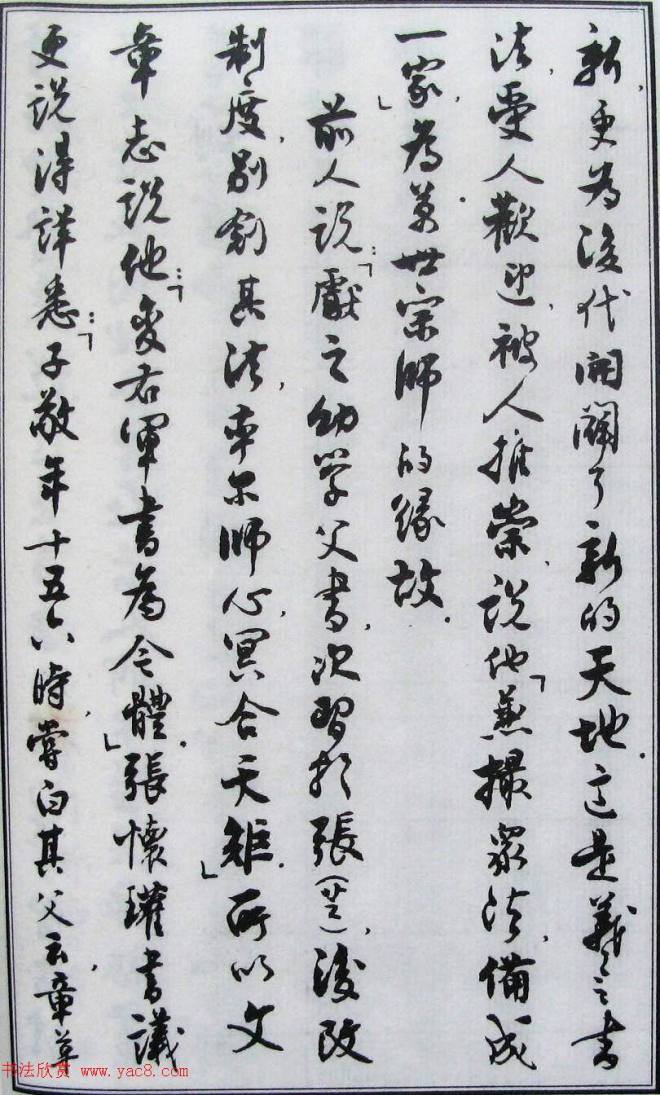 新，更為後代開闢了新的天地。這是羲之書
法，受人歡迎，被人推崇，說他「兼撮眾法，備成
一家」，為萬世宗師的緣故。
前人說：「獻之幼學父書，次習於張（芝），後改
制度，別創其法，率爾師心，冥合天矩。」所以文
章志說他：「變右軍書為今體。」張懷瓘書議
更說得詳悉：「子敬年十五六時，嘗白其父云，章草
书法欣赏 www.yac8.com